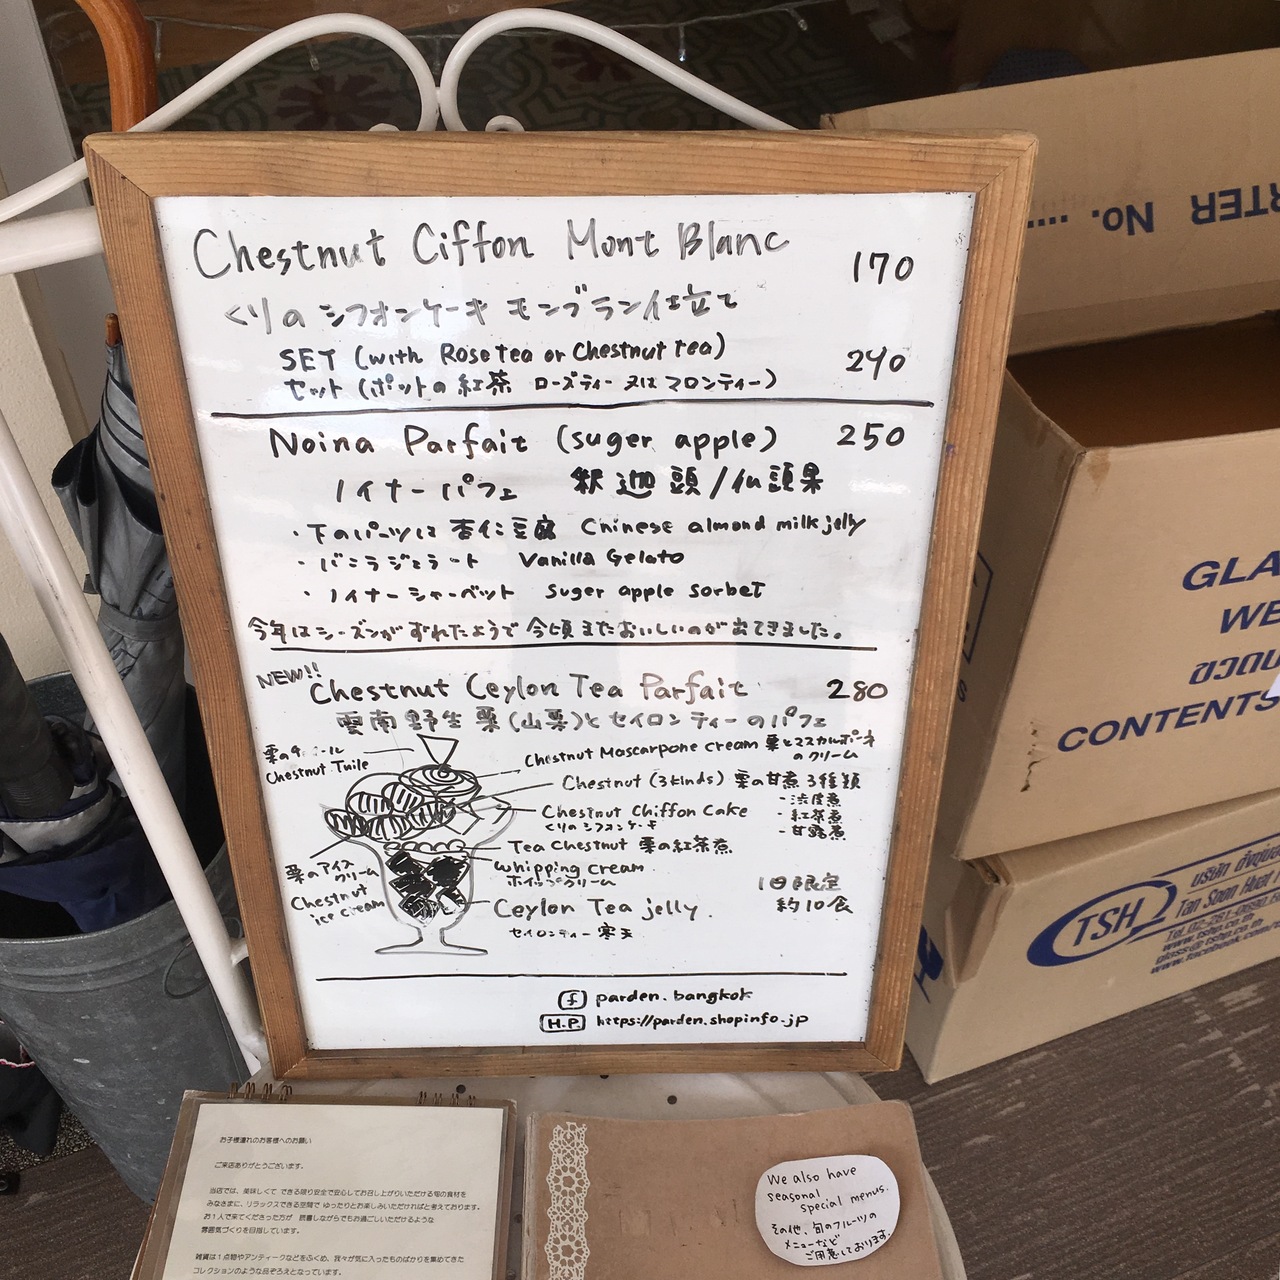 Chestnut Ciffon Mont Blanc 170
くりの シフォンケーキ モンブラン仕立て
SET (with Rose tea or Chestnut tea) 240
セット (ポットの紅茶 ローズティー 又は マロンティー)
Noina Parfait (suger apple) 250
ノイナーパフェ 釈迦頭/仏頭果
・下のパーツは 杏仁豆腐 Chinese almond milk jelly
・バニラジェラート Vanilla Gelato
・ノイナーシャーベット Suger apple sorbet
今年はシーズンがずれたようで 今頃またおいしいのが出てきました。
NEW!!
Chestnut Ceylon Tea Parfait 280
雲南野生栗(山栗)と セイロンティーのパフェ
栗のチュイール
Chestnut Tuile
Chestnut Mascarpone cream 栗とマスカルポーネ
のクリーム
Chestnut (3kinds) 栗の甘煮 3種類
- 渋皮煮
- 紅茶煮
- 甘露煮
Chestnut Chiffon Cake
くりのシフォンケーキ
Tea Chestnut 栗の紅茶煮
栗のアイス
クリーム
Chestnut
ice cream
whipping cream
ホイップクリーム
Ceylon Tea jelly
セイロンティー 寒天
1日限定
約10食
f parden.bangkok
H.P. https://parden.shopinfo.jp
お子様連れのお客様へのお願い
ご来店ありがとうございます。
当店では、美味しくて できる限り安全で安心してお召し上がりいただける旬の食材を
みなさまに、リラックスできる空間で ゆったりとお楽しみいただければと考えております。
お1人で来てくださった方が 読書しながらでもお過ごしいただけるような
雰囲気づくりを目指しています。
雑貨は1点物やアンティークなどをふくめ、我々が気に入ったものばかりを集めてきた
コレクションのような品ぞろえとなっています。
We also have
seasonal
special menus.
その他、旬のフルーツの
メニューなど
ご用意しております。
RTER No.
GLA
WE
CONTENTS
TSH
Tan Soon Huat
www.tshp.co.th